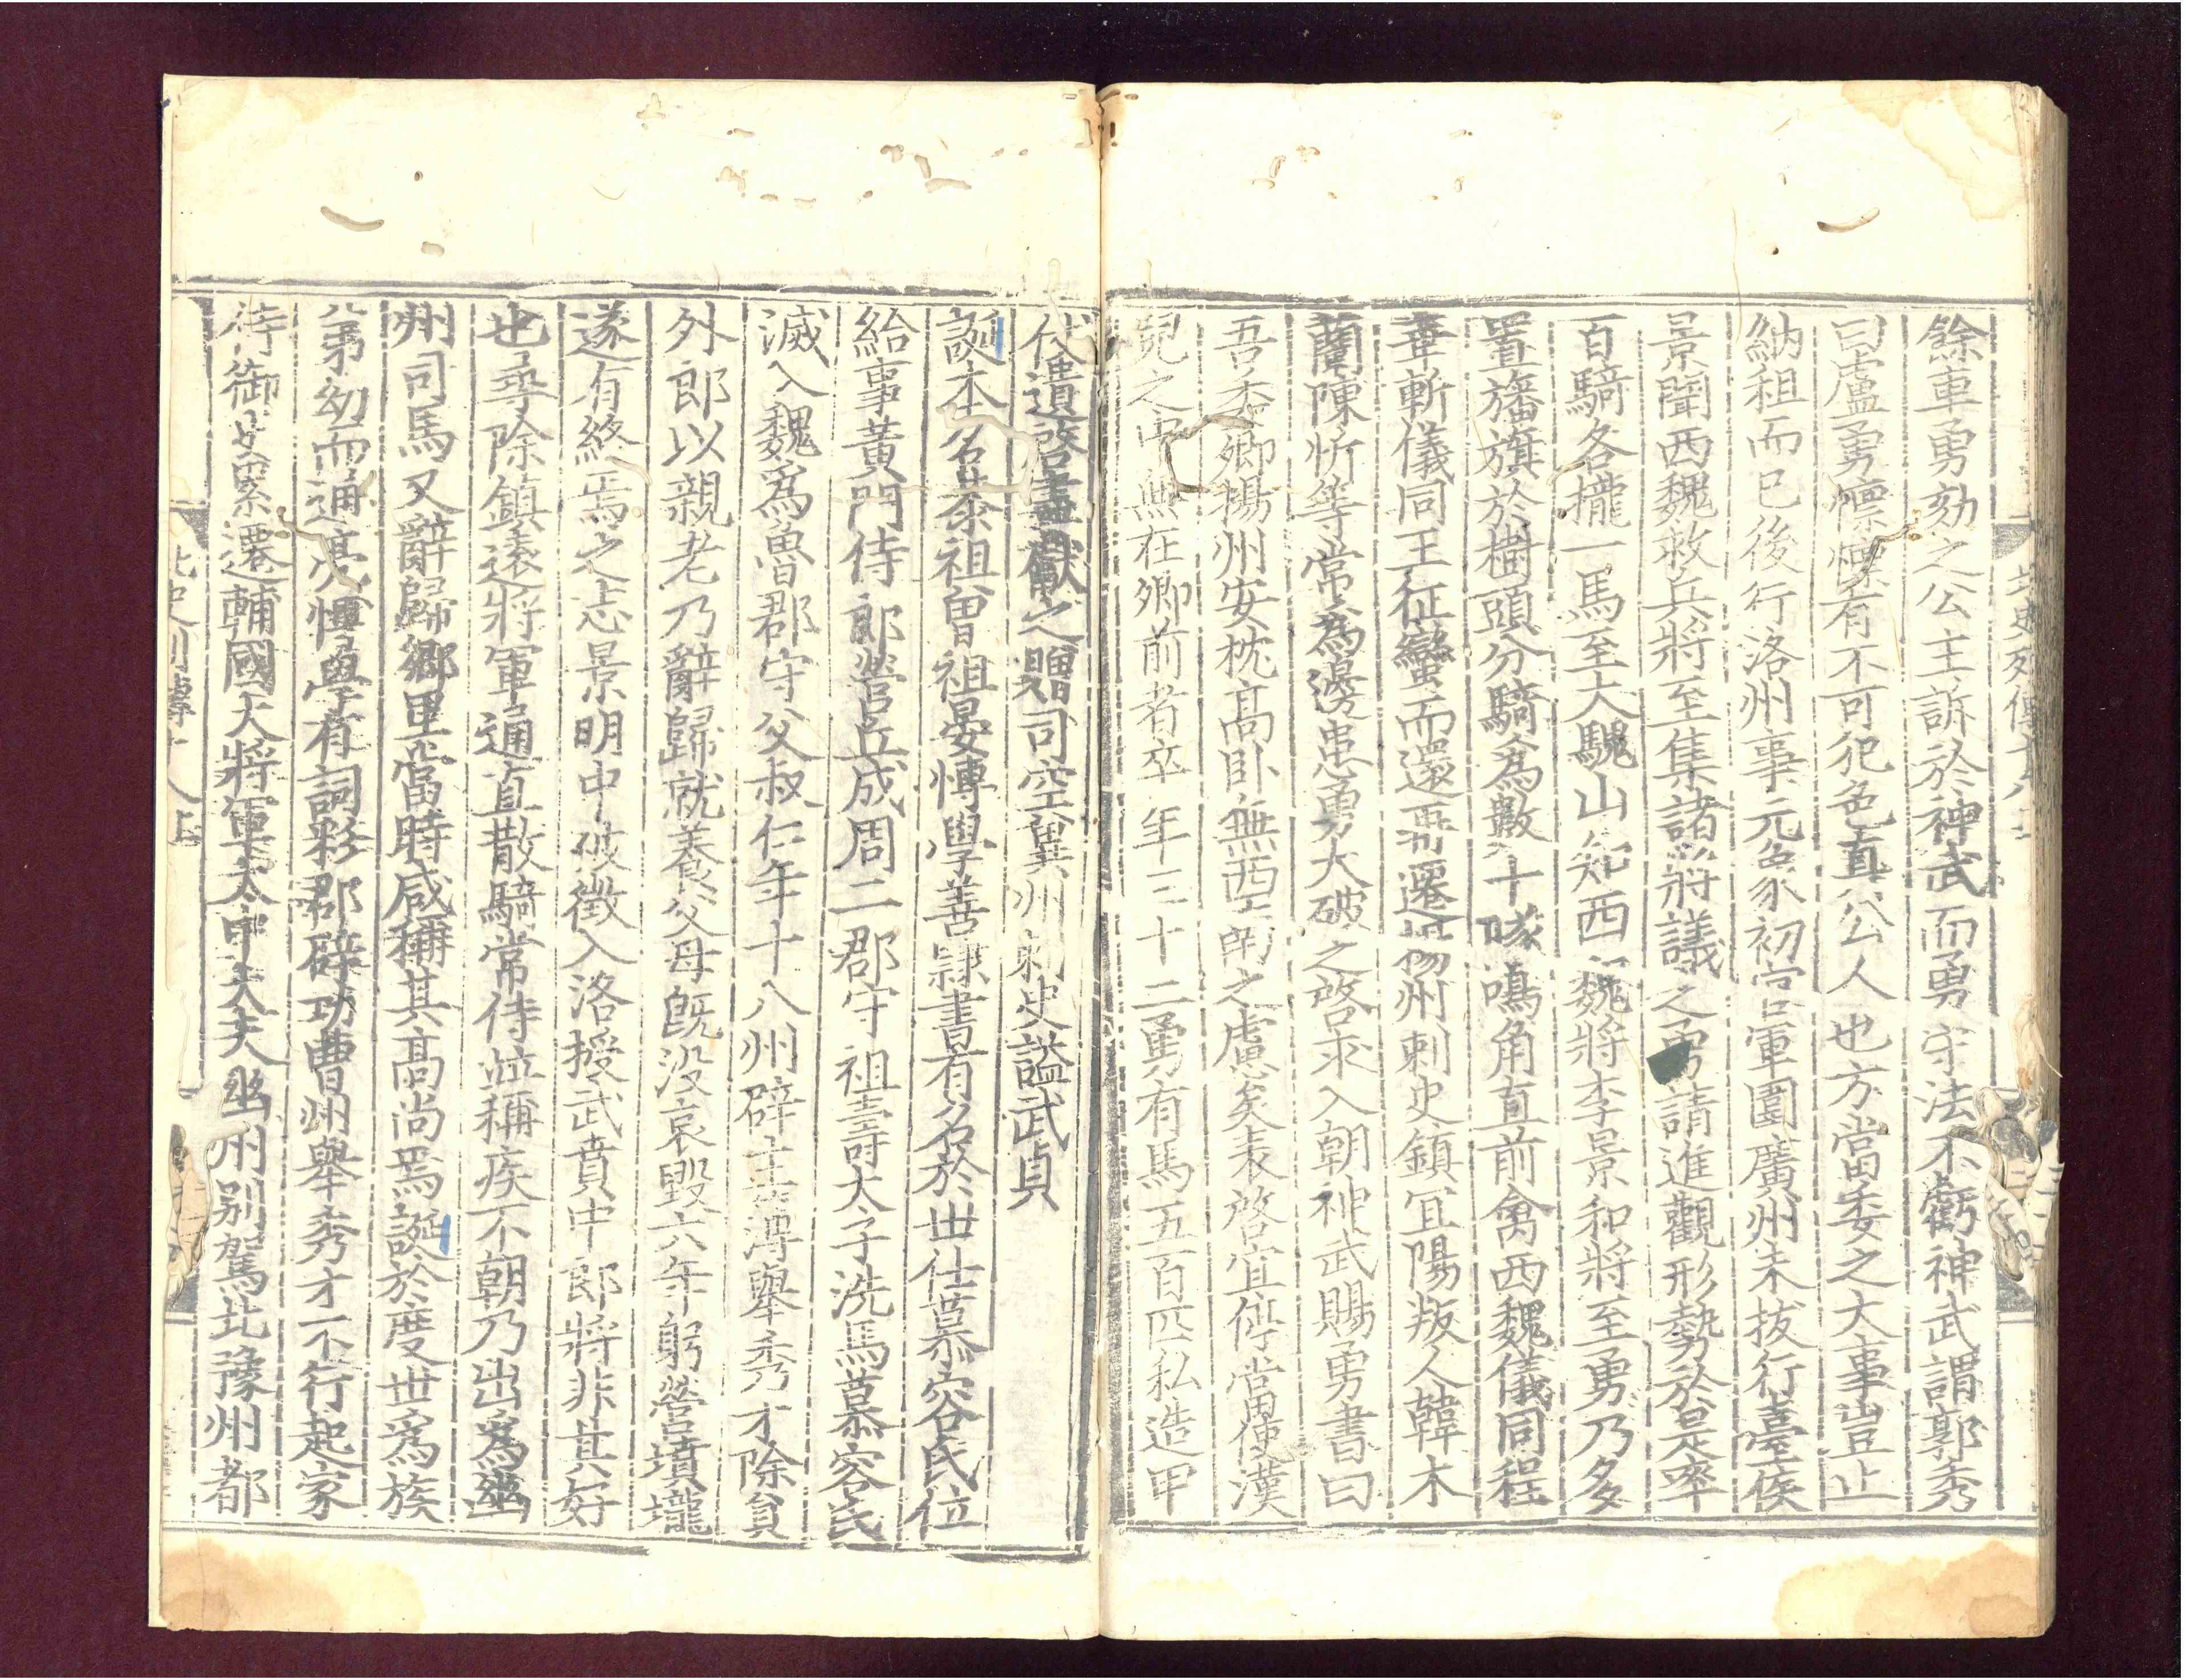 餘車勇劾之公主訴於神武而勇守法不虧神武謂郭秀
曰盧勇懍懍有不可犯色真公人也方當委之大事豈止
納租而已後行洛州事元象初官軍圍廣州未拔行臺侯
景聞西魏救兵將至集諸將議之勇請進觀形勢於是率
百騎各攏一馬至大騩山知西魏將李景和將至勇乃多
置旛旗於樹頭分騎爲數十隊鳴角直前禽西魏儀同程
華斬儀同王征蠻而還再遷揚州刺史鎮宜陽叛人韓木
蘭陳忻等常爲邊患勇大破之啓求入朝神武賜勇書曰
吾委卿揚州安枕高卧無西南之慮矣表啓宜停當使漢
兒之中無在卿前者卒年三十二勇有馬五百匹私造甲
仗遺啓盡獻之贈司空冀州刺史謚武貞
誕本名恭祖曾祖晏博學善隸書有名於世仕慕容氏位
給事黃門侍郎營丘成周二郡守祖壽太子洗馬慕容氏
滅入魏爲魯郡守父叔仁年十八州辟主簿舉秀才除員
外郎以親老乃辭歸就養父母既没哀毀六年躬營墳壠
遂有終焉之志景明中被徵入洛授武賁中郎將非其好
也尋除鎮遠將軍通直散騎常侍並稱疾不朝乃出爲幽
州司馬又辭歸鄉里當時咸稱其高尚焉誕於度世爲族
弟幼而通亮博學有詞彩郡辟功曹州舉秀才不行起家
侍御史累遷輔國大將軍太中大夫幽州别駕北豫州都
北史列傳十八上